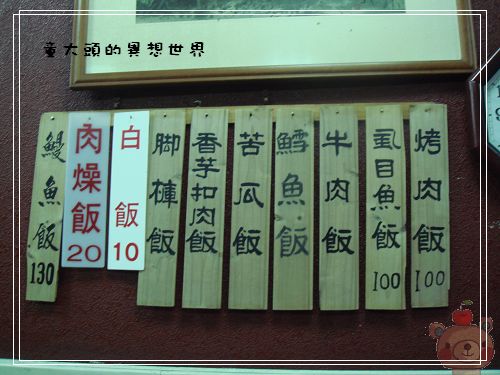 童大頭的異想世界
鰻魚飯130
肉燥飯20
白飯10
脚庫飯
香芋扣肉飯
苦瓜飯
鱈魚飯
牛肉飯
虱目魚飯100
烤肉飯100